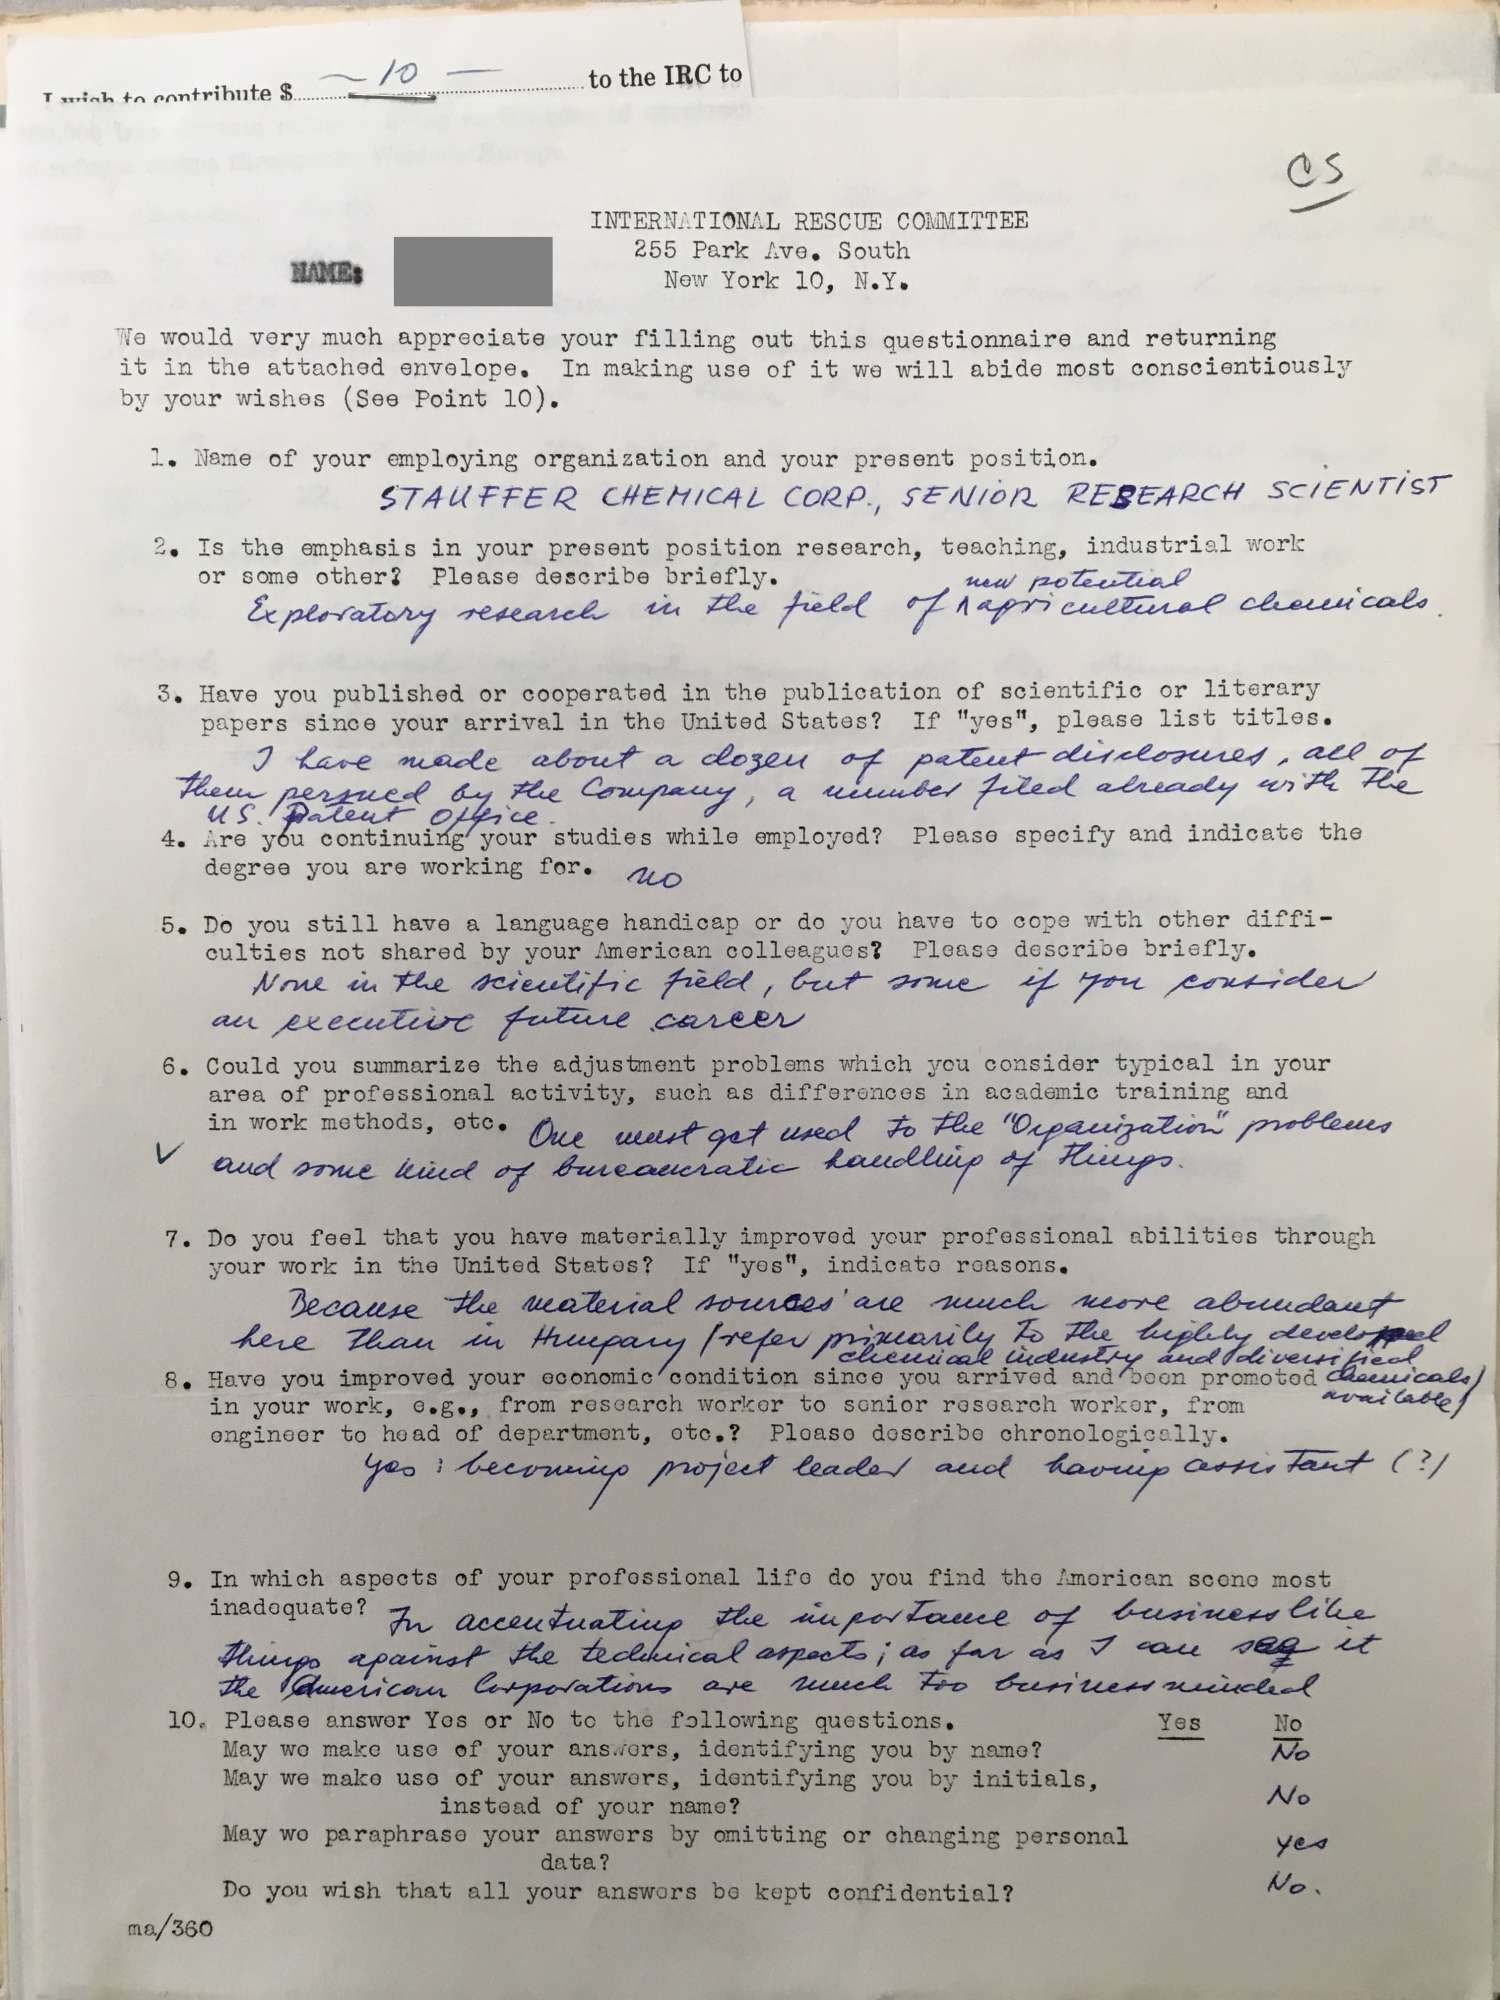 I wish to contribute $ — 10 — to the IRC to
CS
INTERNATIONAL RESCUE COMMITTEE
255 Park Ave. South
NAME:
New York 10, N.Y.
We would very much appreciate your filling out this questionnaire and returning
it in the attached envelope. In making use of it we will abide most conscientiously
by your wishes (See Point 10).
1. Name of your employing organization and your present position.
STAUFFER CHEMICAL CORP., SENIOR RESEARCH SCIENTIST
2. Is the emphasis in your present position research, teaching, industrial work
or some other? Please describe briefly.
new potential
Exploratory research in the field of agricultural chemicals.
3. Have you published or cooperated in the publication of scientific or literary
papers since your arrival in the United States? If "yes", please list titles.
I have made about a dozen of patent disclosures, all of
them persued by the Company, a number filed already with the
U.S. Patent Office.
4. Are you continuing your studies while employed? Please specify and indicate the
degree you are working for. no
5. Do you still have a language handicap or do you have to cope with other diffi-
culties not shared by your American colleagues? Please describe briefly.
None in the scientific field, but some if you consider
an executive future career
6. Could you summarize the adjustment problems which you consider typical in your
area of professional activity, such as differences in academic training and
in work methods, etc. One must get used to the "Organization" problems
✓ and some kind of bureaucratic handling of things.
7. Do you feel that you have materially improved your professional abilities through
your work in the United States? If "yes", indicate reasons.
Because the material sources are much more abundant
here than in Hungary (refer primarily to the highly developed
chemical industry and diversified
8. Have you improved your economic condition since you arrived and been promoted chemicals
in your work, e.g., from research worker to senior research worker, from available)
engineer to head of department, etc.? Please describe chronologically.
yes: becoming project leader and having assistant (?)
9. In which aspects of your professional life do you find the American scene most
inadequate? In accentuating the importance of businesslike
things against the technical aspects; as far as I can see it
the American Corporations are much too businessminded
10. Please answer Yes or No to the following questions. Yes No
May we make use of your answers, identifying you by name? No
May we make use of your answers, identifying you by initials,
instead of your name? No
May we paraphrase your answers by omitting or changing personal
data? yes
Do you wish that all your answers be kept confidential? No.
ma/360